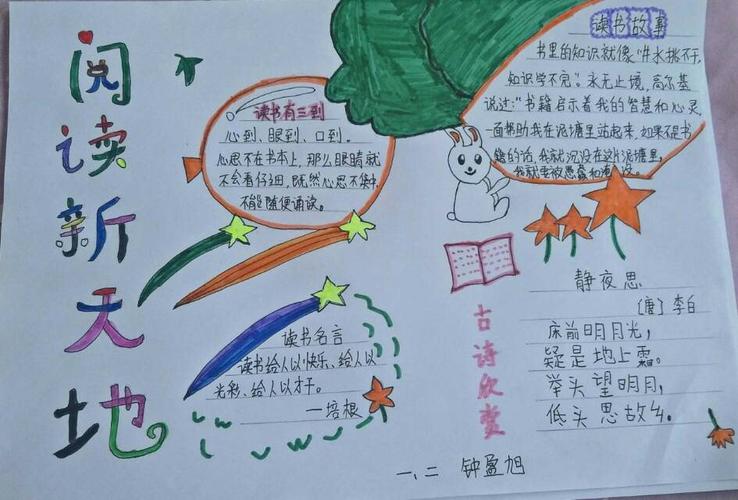 阅读新天地
读书有三到
心到、眼到、口到。
心思不在书本上，那么眼睛就
不会看仔细，既然心思不集中，
不能随便诵读。
读书名言
读书给人以快乐、给人以
光彩、给人以才干。
—培根
读书故事
书里的知识就像“井水挑不干，
知识学不完”。永无止境，高尔基
说过：“书籍启示着我的智慧和心灵，
一面帮助我在泥塘里站起来，如果不是书
籍的话，我就沉没在这片泥塘里，
我就要被愚蠢和
古诗欣赏
静夜思
（唐）李白
床前明月光，
疑是地上霜。
举头望明月，
低头思故乡。
一、二 钟盈旭